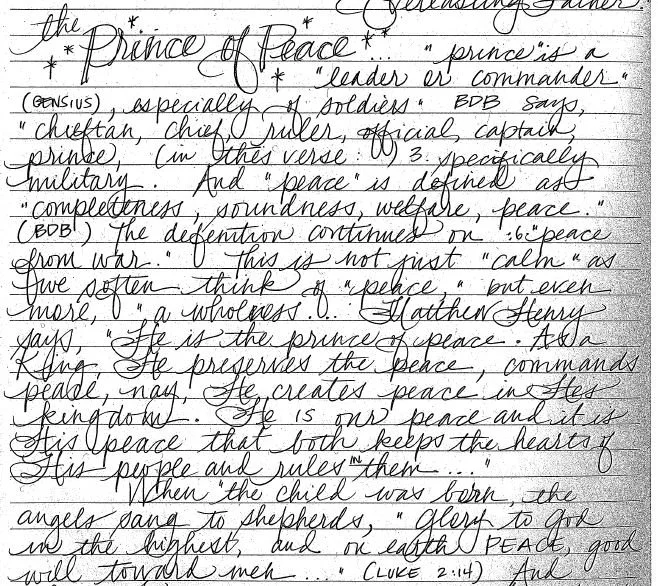 Everlasting Father.
the
* * Prince of Peace * ... "prince" is a
* * "leader or commander"
(GENSIUS), especially of soldiers" BDB says,
"chieftan, chief, ruler, official, captain,
prince, (in this verse:) 3. specifically
military. And "peace" is defined as
"completeness, soundness, welfare, peace."
(BDB) The defenition continues on :6:"peace
from war." This is not just "calm" as
we soften think of "peace," but even
more, "a wholness... Matthew Henry
says, "He is the prince of peace. As a
King, He preserves the peace, commands
peace, nay, He creates peace in Hes
kingdom. He is our peace and it is
His peace that both keeps the hearts of
His people and rules IN them..."
When the child was born, the
angels sang to shepherds, "Glory to God
in the highest, and on earth PEACE, good
will toward men...." (LUKE 2:14) And